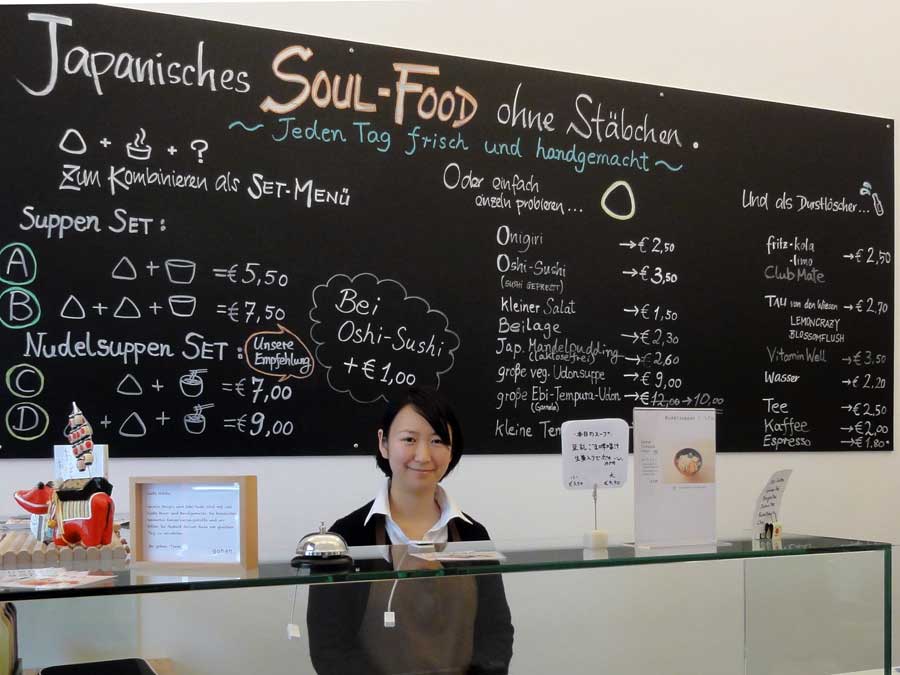 Japanisches SOUL-FOOD ohne Stäbchen.
~ Jeden Tag frisch und handgemacht ~
+ + ?
Zum Kombinieren als SET-MENÜ
SUPPEN SET:
A + = €5,50
B + + = €7,50
Nudelsuppen SET:
Unsere
Empfehlung
C + = €7,00
D + + = €9,00
Bei
Oshi-Sushi
+ €1,00
Oder einfach
einzeln probieren...
Onigiri → €2,50
Oshi-Sushi → €3,50
(SUSHI GEPREßT)
kleiner Salat → €1,50
Beilage → €2,30
Jap. Mandelpudding → €2,60
(laktosefrei)
große veg. Udonsuppe → €9,00
große Ebi-Tempura-Udon → €12,00 → 10,00
(Garnele)
kleine
Und als Durstlöscher...
fritz-kola → €2,50
-limo
Club Mate
TAU von den Wiesen → €2,70
LEMONCRAZY
BLOSSOMFLUSH
Vitamin Well → €3,50
Wasser → €2,20
Tee → €2,50
Kaffee → €2,00
Espresso → €1,80
本日のスープ
gohan